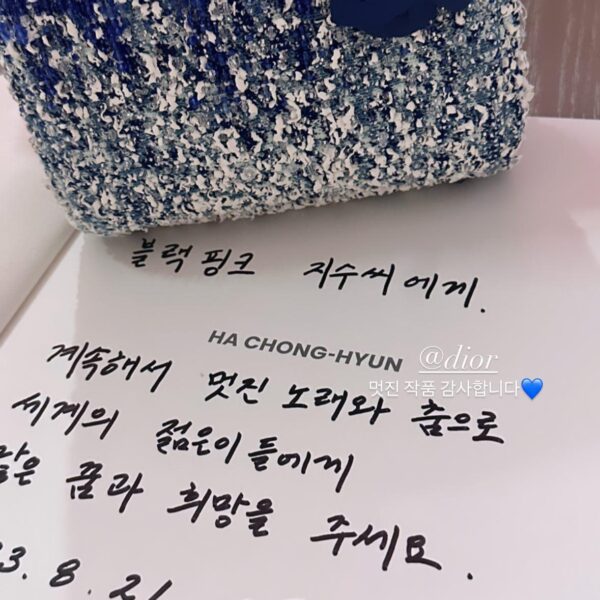 블랙핑크 지수씨에게.
HA CHONG-HYUN @dior
멋진 작품 감사합니다💙
계속해서 멋진 노래와 춤으로
세계의 젊은이들에게
꿈과 희망을 주세요.
3. 8. 21